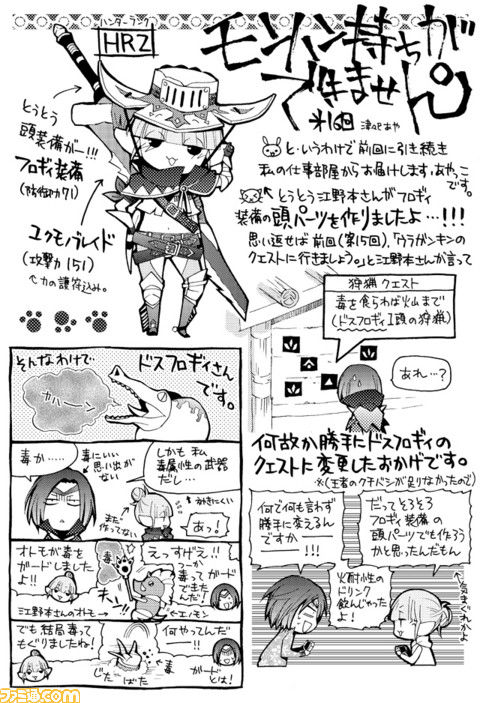 ハンターランク
HR2
モンハン持ちが
できません
第16回
津々巳あや
とうとう
頭装備がー!!!
フロギィ装備
(防御力71)
ユクモノブレイド
(攻撃力151)
↑力の護符込み。
と、いうわけで前回に引き続き
私の仕事部屋からお届けします、あやっこ
です。
とうとう江野本さんがフロギィ
装備の頭パーツを作りましたよ…!!!
思い返せば前回(第15回)、「ウラガンキンの
クエストに行きましょう。」と江野本さんが言って
狩猟クエスト
毒を食らわば火山まで
(ドスフロギィ1頭の狩猟)
あれ…?
何故か勝手にドスフロギィの
クエストに変更したおかげです。
※(王者のクチバシが足りなかったので)
何で何も言わず
勝手に変えるん
ですか
ーーー!!!
だってそろそろ
フロギィ装備の
頭パーツでも作ろう
かと思ったんだもん
火耐性の
ドリンク
飲んじゃった
よ!
気まぐれかよ
そんなわけで…
ドスフロギィさん
です。
カハーーン
毒か……
毒にいい
思い出が
ない
しかも私
毒属性の武器
だし…
効きにくい
まだ
作ってない
あっ!
オトモが毒を
ガードしました
よ!!
毒
えっすげえ!!
つーか
毒って
ガード
できた
んだ!
江野本さんのオトモ→
←エノモン
でも結局毒って
もぐりましたね!
何やってんだ
!!
じた
ばた
毒
ガード
とは!
ファミ通.com